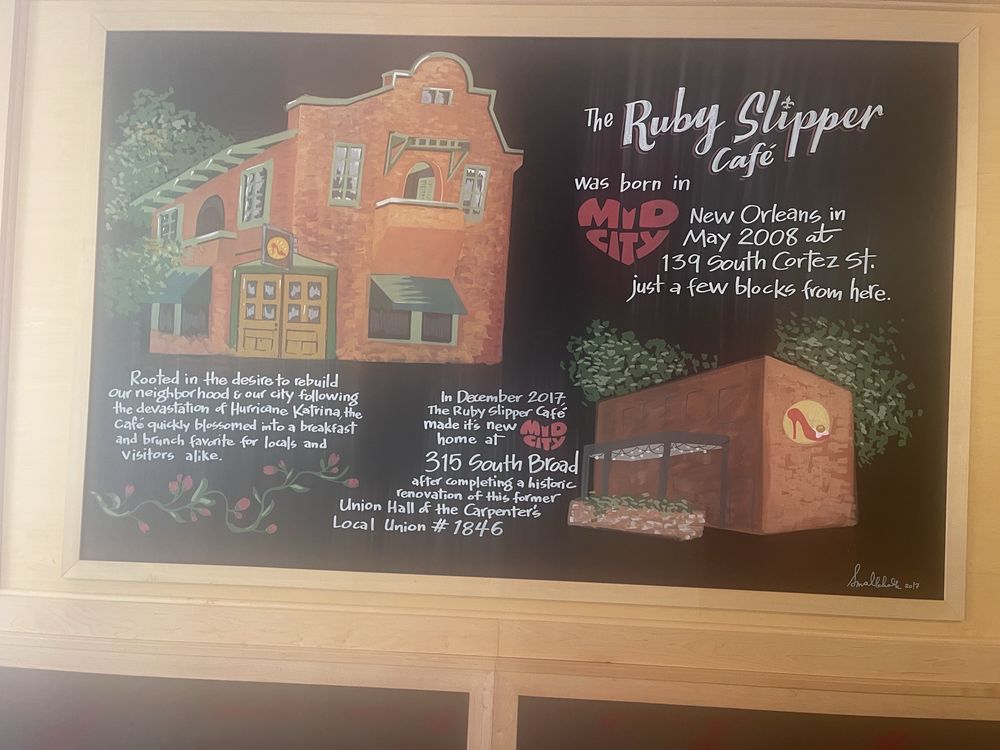 The Ruby Slipper
Café
was born in
MID
CITY
New Orleans in
May 2008 at
139 South Cortez St.
just a few blocks from here.
Rooted in the desire to rebuild
our neighborhood & our city following
the devastation of Hurricane Katrina, the
Café quickly blossomed into a breakfast
and brunch favorite for locals and
visitors alike.
In December 2017,
The Ruby Slipper Café
made it's new MID
CITY
home at
315 South Broad
after completing a historic
renovation of this former
Union Hall of the Carpenter's
Local Union # 1846
2017